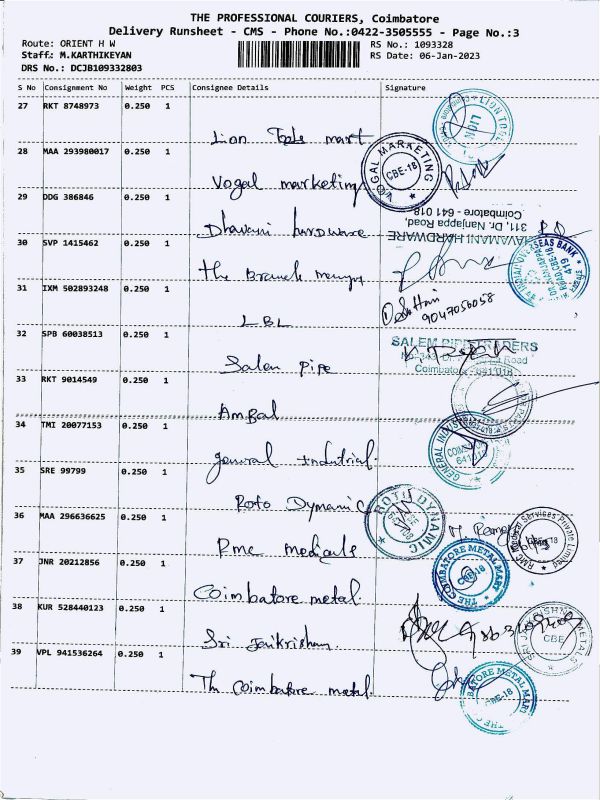 THE PROFESSIONAL COURIERS, Coimbatore
Delivery Runsheet - CMS - Phone No.:0422-3505555 - Page No.:3
Route: ORIENT H W
RS No.: 1093328
Staff.: M.KARTHIKEYAN
RS Date: 06-Jan-2023
DRS No.: DCJB109332803
S No Consignment No Weight PCS Consignee Details Signature
27 RKT 8748973 0.250 1
Lion Tools mart
LION
28 MAA 293980017 0.250 1
Vogal marketing
VOGAL MARKETING
CBE-18
29 DDG 386846 0.250 1
Dhavani hardware
311, Dr. Nanjappa Road,
Coimbatore - 641 018
30 SVP 1415462 0.250 1
The Branch
INDIAN OVERSEAS BANK
31 IXM 502893248 0.250 1
LBL
9047056058
32 SPB 60038513 0.250 1
Salem Pipe
SALEM PIPE TRADERS
Road
Coimbatore - 641 018
33 RKT 9014549 0.250 1
Ambal
34 TMI 20077153 0.250 1
general Industrial
GENERAL INDUSTRIAL
35 SRE 99799 0.250 1
Roto Dymanic
ROTO DYNAMIC
36 MAA 296636625 0.250 1
Rmc medicals
RMC Medical Services Private Limited
CBE-18
37 JNR 20212856 0.250 1
Coimbatore metal
THE COIMBATORE METAL MART
CBE-18
38 KUR 528440123 0.250 1
Sri Jaikrishna
SRI JAI KRISHNA METALS
CBE
39 VPL 941536264 0.250 1
The Coimbatore metal.
THE COIMBATORE METAL MART
CBE-18